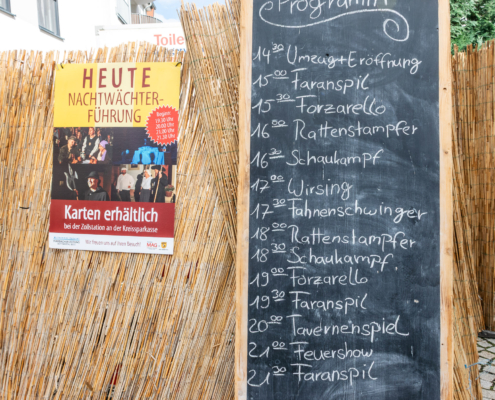 Toile
HEUTE
NACHTWÄCHTER-
FÜHRUNG
Beginn:
19.30 Uhr
20.00 Uhr
21.00 Uhr
21.30 Uhr
Karten erhältlich
bei der Zollstation an der Kreissparkasse
Wir freuen uns auf Ihren Besuch!
Programm
14³⁰ Umzug+Eröffnung
15⁰⁰ Faranspil
15³⁰ Forzarello
16⁰⁰ Rattenstampfer
16³⁰ Schaukampf
17⁰⁰ Wirsing
17³⁰ Fahnenschwinger
18⁰⁰ Rattenstampfer
18³⁰ Schaukampf
19⁰⁰ Forzarello
19³⁰ Faranspil
20⁰⁰ Tavernenspiel
21⁰⁰ Feuershow
21³⁰ Faranspil